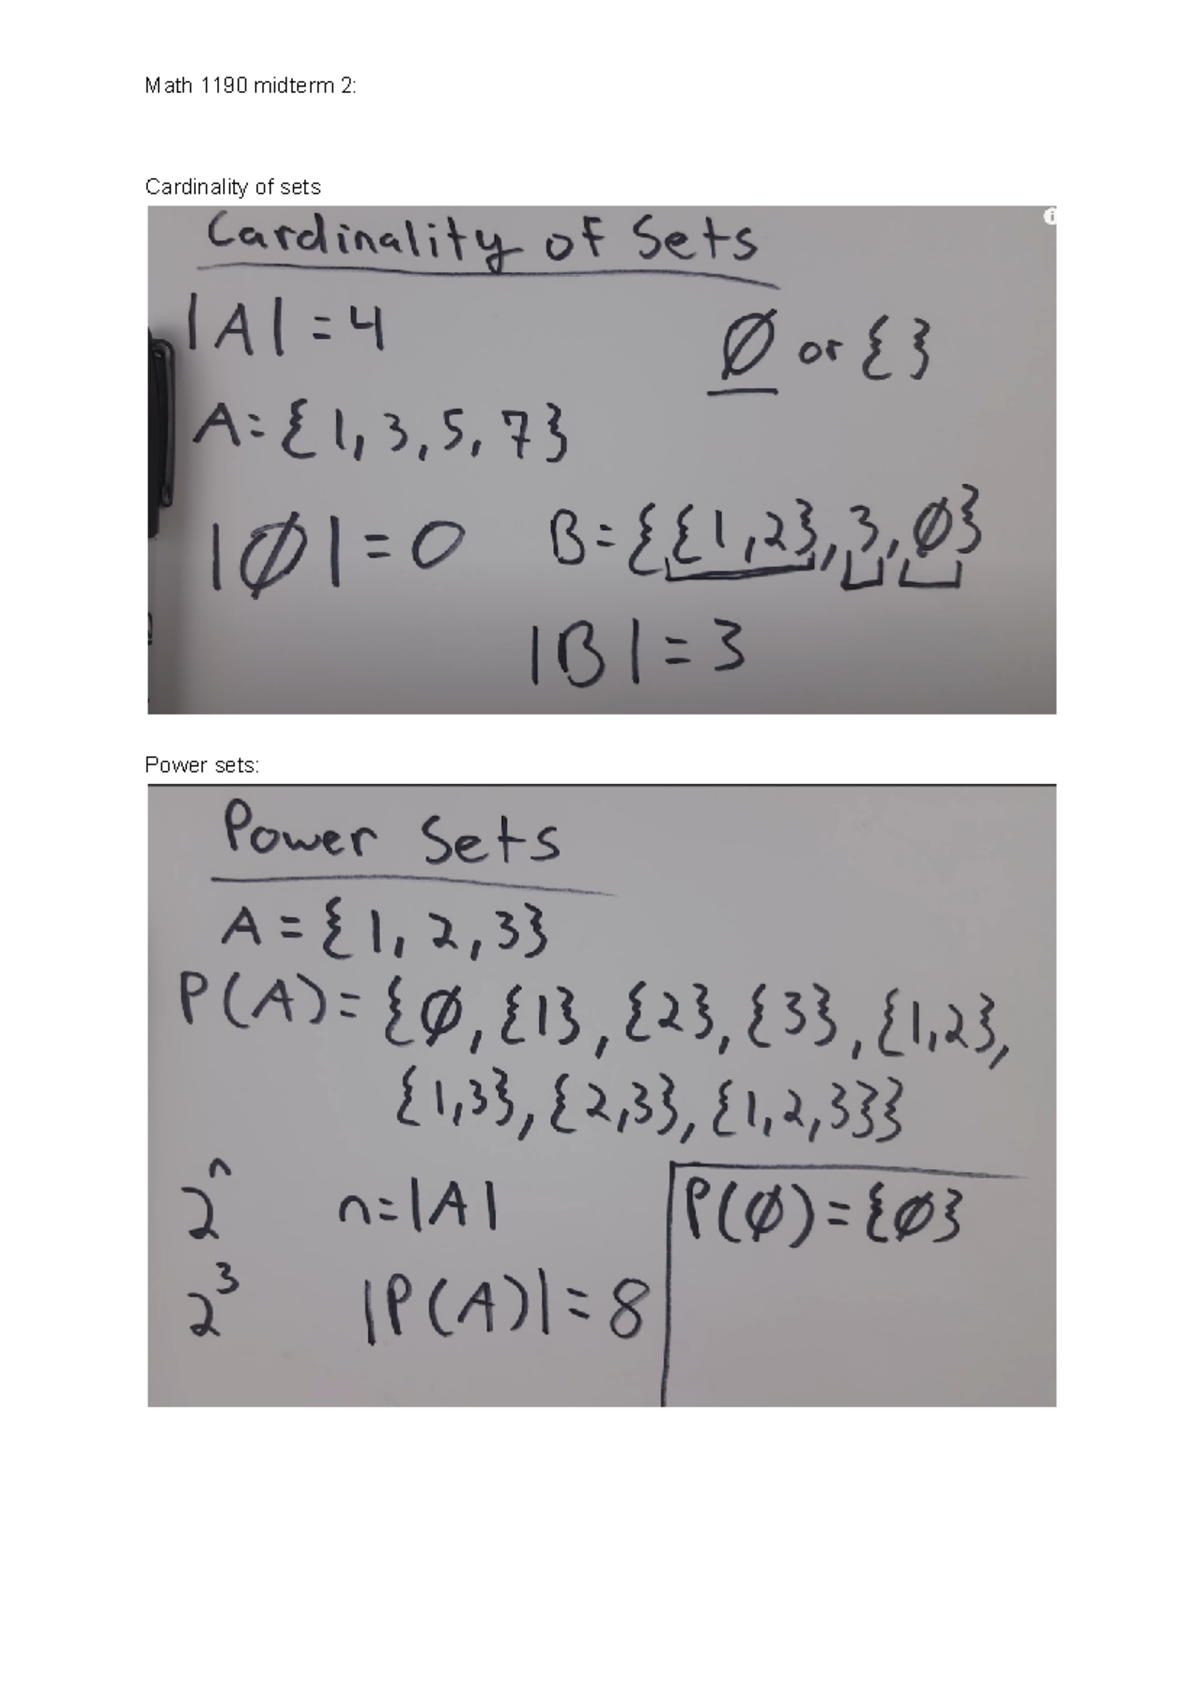 Math 1190 midterm 2:
Cardinality of sets
Cardinality of Sets
|A| = 4
∅ or { }
A = {1, 3, 5, 7}
|∅| = 0
B = {{1,2}, 3, ∅}
|B| = 3
Power sets:
Power Sets
A = {1, 2, 3}
P(A) = {∅, {1}, {2}, {3}, {1,2},
{1,3}, {2,3}, {1,2,3}}
2ⁿ n = |A|
P(∅) = {∅}
2³ |P(A)| = 8